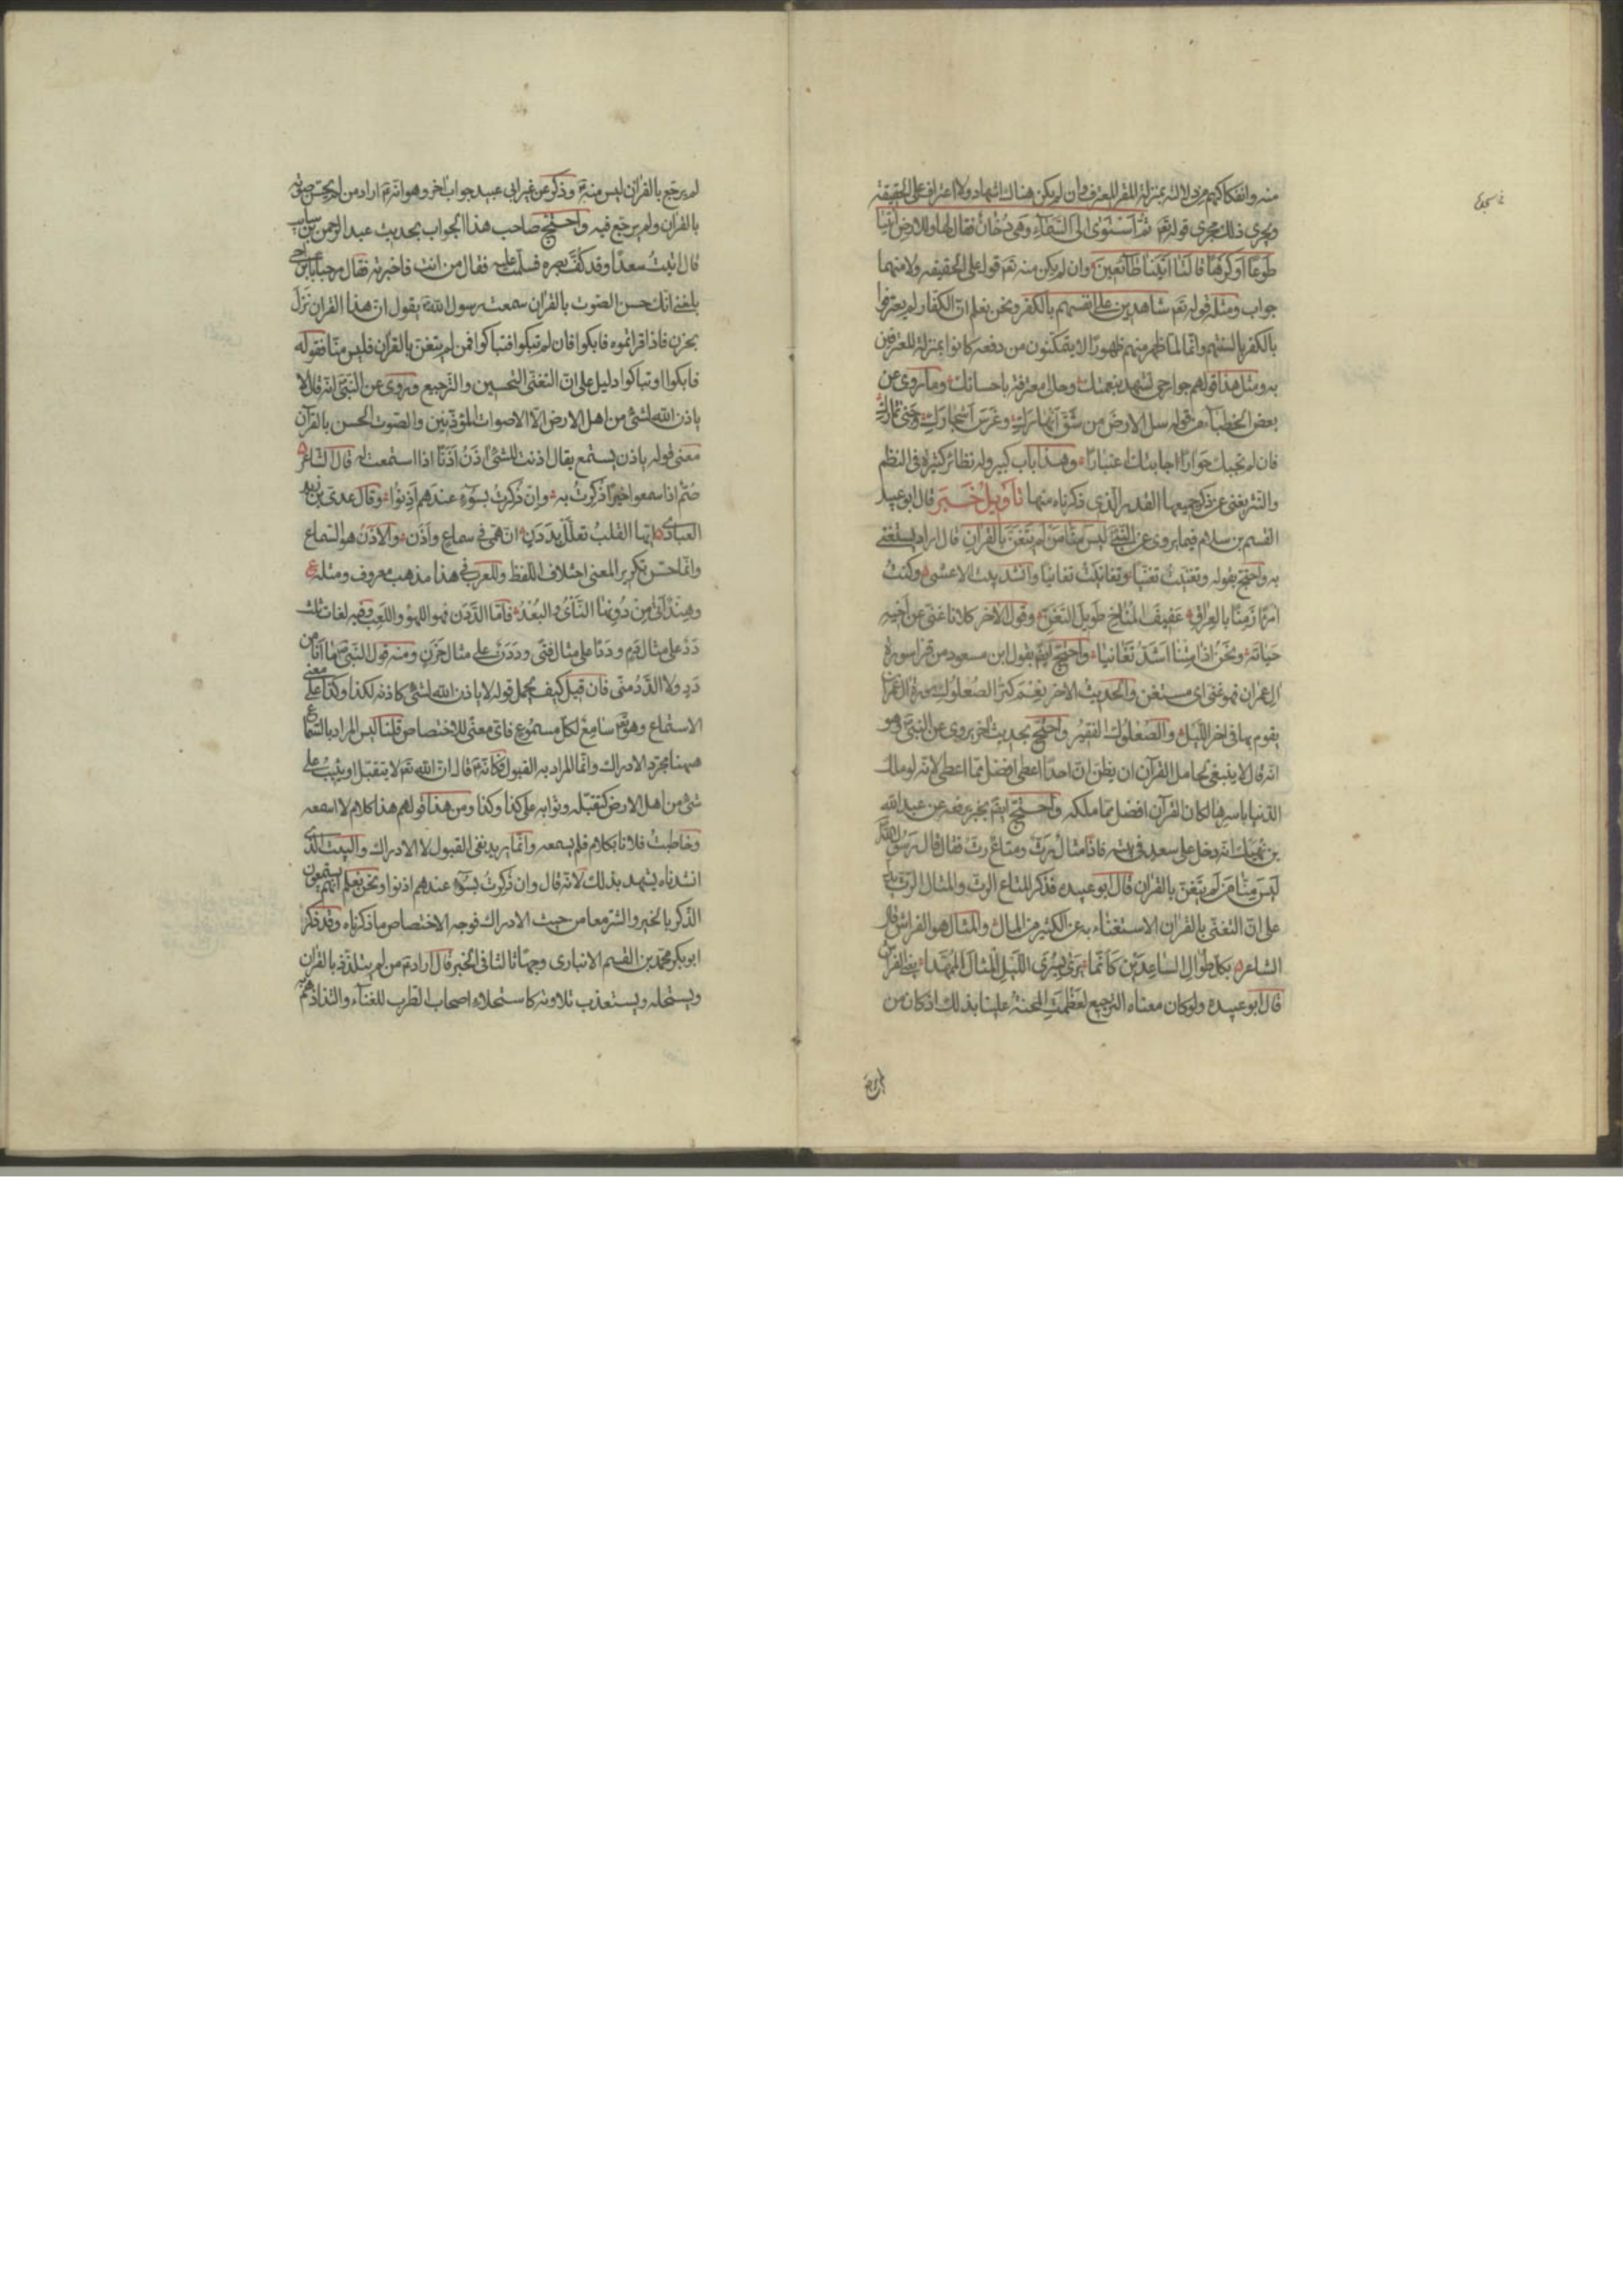 منه وانفكاكهم من دلالته بمنزلة المقر المعترف وان لم يكن هناك اشهاد ولا اعتراف على الحقيقة
ويجرى ذلك مجرى قوله تعم ثُمَّ اسْتَوٰى اِلَى السَّمَآءِ وَهِىَ دُخَانٌ فَقَالَ لَهَا وَلِلْاَرْضِ ائْتِيَا
طَوْعًا اَوْ كَرْهًا قَالَتَا اَتَيْنَا طَآئِعِينَ وان لم يكن منه تعم قول على الحقيقه ولا منهما
جواب ومثله قوله تعم شاهدين على انفسهم بالكفر ونحن نعلم ان الكفار لم يعترفوا
بالكفر بالسنتهم وانما لما ظهر منهم ظهورًا لا يتمكنون من دفعه كانوا بمنزلة المعترفين
به ومثل هذا قولهم جوارحى تشهد بنعمتك وحالى معترفة باحسانك وما روى عن
بعض الخطبآء من قوله سل الارض من شَقَّ اَنْهَارَكِ وغَرَسَ اَشْجَارَكِ وجَنٰى ثمارك
فان لم تجبك حوارًا اجابتك اعتبارًا وهذا باب كبير وله نظائر كثيرة فى النظم
والنثر يغنى عن ذكر جميعها القدر الذى ذكرناه منها تَأويلُ خَبَرٍ قال ابو عبيد
القسم بن سلام فيما يروى عن النبى لَيسَ مِنَّا مَنْ لَم يَتَغَنَّ بالقُرانِ قال اراد يستغنى
به واحتج بقوله وتغنيت تغنيًا وتغانيت تغانيًا وانشد بيت الاعشى وكُنتُ
امرَءًا زَمِنًا بالعِراقِ عَفيفَ المُناخِ طَويلَ التَغَنِّ وقول الاخر كلانا غنىٌ عن اَخيه
حَيَاتَهُ ونَحنُ اذَا مِتْنَا اَشَدُّ تَغَانيا واحتج ايضم بقول ابن مسعود من قرا سورة
ال عمران فهو غنى اى مستغن والحديث الاخر نِعْمَ كنزُ الصُعلُوكِ سورة ال عمران
يقوم بها فى اخر الليل والصُعْلُوك الفقيرُ واحتج بحديث اخر يروى عن النبى وهو
انه قال لا ينبغى لحامل القرآن ان يظن ان احدًا اعطى افضل مما اعطى لانه لو ملك
الدنيا باسرها لكان القرآن افضل مما ملكه واحتج ايضم بخبر يرفعه عن عبد الله
بن نهيك انه دخل على سعد فى بيته فاذًا مثال رَثٌّ ومتاعٌ رثٌّ فقال قال رسول الله
لَيسَ مِنَّا مَن لَم يَتَغَنَّ بالقران قال ابو عبيده فذكر المتاع الرث والمثال الرث يدل
على ان التغنى بالقران الاستغناء به عن الكثير من المال والمثال هو الفراش قال
الشاعر بكل طُوَالِ السَاعِدَيْنِ كَاَنَّما يَرٰى بِسُرَى الليْلِ المِثالَ المُمَهَّدا يعنى الفراش
قال ابو عبيده ولو كان معناه الترجيع لعَظُمَتِ المحنةُ علينا بذلك اذ كان من
لم يرجّع بالقران ليس منه وذكر عن غير ابى عبيد جواب اخر وهو انه اراد من لم يحسن صوته
بالقران ولم يرجّع فيه واحتج صاحب هذا الجواب بحديث عبد الرحمن بن سايب
قال اتيتُ سعدًا وقد كُفَّ بصره فسلمت عليه فقال من انت فاخبرته فقال مرحبا بابن اخى
بلغنى انك حسن الصوت بالقران سمعت رسول الله يقول ان هذا القران نَزَلَ
بحزنٍ فاذا قراتموه فابكوا فان لم تبكوا فتباكوا فمن لم يتغن بالقران فليس منا فقوله
فابكوا او تباكوا دليل على ان التغنى التحسين والترجيع وروى عن النبى انه قال لا
ياذن الله لشئ من اهل الارض الا لاصوات المؤذنين والصوت الحسن بالقرآن
معنى قوله ياذن يستمع يقال اذنت للشئ اٰذَنُ اَذَنًا اذا استمعت له قال الشاعر
صُمٌّ اذا سمعوا خيرًا ذُكِرتُ به وان ذُكِرتُ بسوءٍ عندهم اَذِنُوا وقال عدى بن زيد
العبادى ايها القلبُ تعلَّل بِدَدَنِ ان همى فى سماعٍ واَذَن والاَذَنُ هو السماع
وانما حسن تكرير المعنى اختلاف اللفظ وللعرب فى هذا مذهب معروف ومثله ع
وهِندٌ اَتٰى مِن دُونِها النَّأْىُ والبُعْدُ فاما الدَّدَن فهو اللهو واللعِب وفيه لغات ثلث
دَدٌ على مثال دَمٍ ودَدًا على مثال فَتًى ودَدَنٌ على مثال حَزَنٍ ومنه قول النبى ما انا من
دَدٍ ولا الدَّدُ منى فان قيل كيف يحمل قوله لا ياذن الله لشئ كاذنه لكذا وكذا على معنى
الاستماع وهو تعم سامعٌ لكل مسموع فاى معنًى للاختصاص قلنا ليس المراد بالسماع
هيهنا مجرد الادراك وانما المراد به القبول فكانه قال ان الله تعم لا يتقبل او يثيبُ على
شئ من اهل الارض كتقبله وثوابه على كذا وكذا ومن هذا قولهم هذا كلام لا اسمعه
وخاطبتُ فلانا بكلام فلم يسمعه وانما يريد نفى القبول لا الادراك والبيت الذى
انشدناه يشهد بذلك لانه قال وان ذُكِرتُ بسوءٍ عندهم اذنوا ونحن نعلم انهم يستمعون
الذكر بالخير والشر معا من حيث الادراك فوجه الاختصاص ما ذكرناه وقد ذكر
ابو بكر محمد بن القسم الانبارى وجهًا ثالثا فى الخبر قال اراد من لم يتلذذ بالقران
ويستحله ويستعذب تلاوته كاستحلاء اصحاب الطرب للغنآء والتذاذهم به